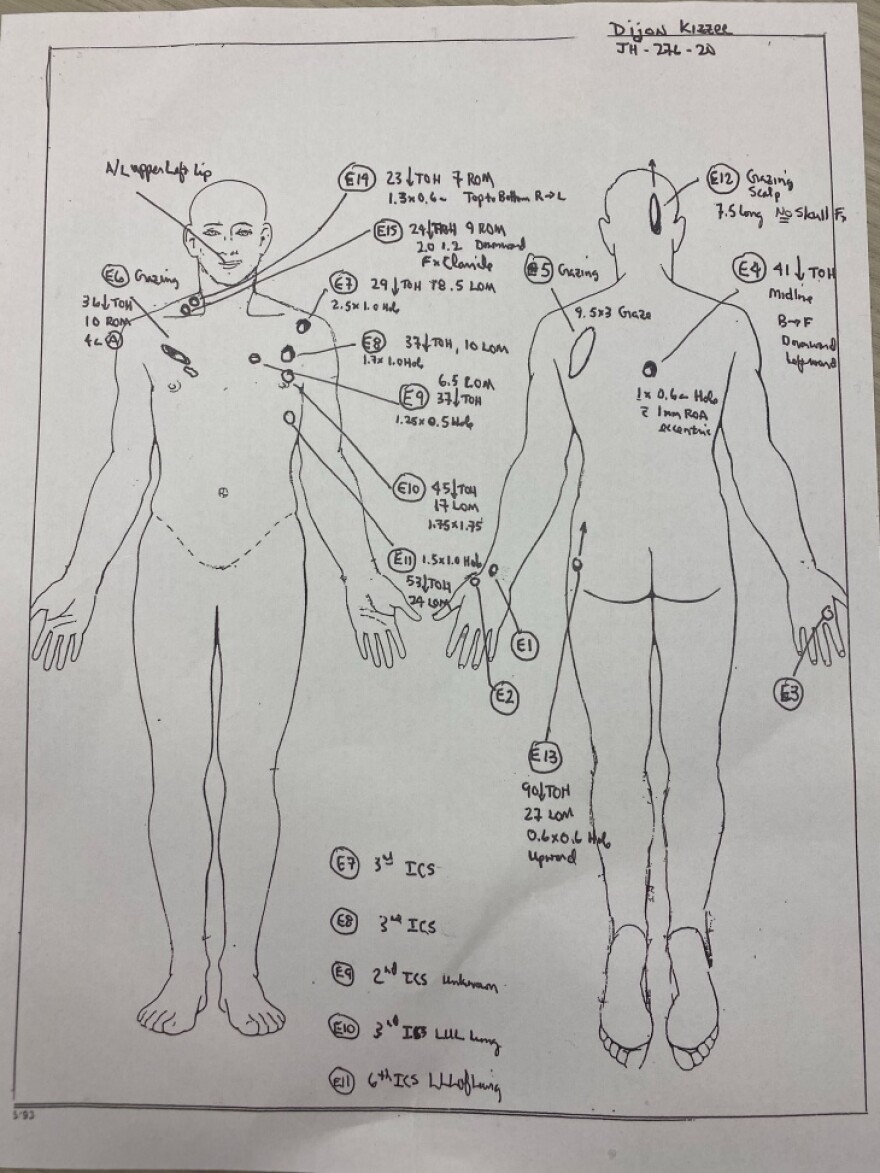 Dijon Kizzee
JH-276-20
A/L upper left lip
E14 23↓TOH 7 ROM
1.3 x 0.6 Top to Bottom R→L
E15 24↓TOH 9 ROM
2.0 1.2 Downward
Fx Clavicle
E6 Grazing
36↓TOH
10 ROM
E7 29↓TOH 18.5 LOM
2.5 x 1.0 Hole
E8 37↓TOH, 10 LOM
1.7 x 1.0 Hole
E9 6.5 LOM
37↓TOH
1.25 x 0.5 Hole
E10 45↓TOH
17 LOM
1.75 x 1.75
E11 1.5 x 1.0 Hole
53↓TOH
24 LOM
E12 Grazing
Scalp
7.5 long No Skull Fx
E5 Grazing
9.5x3 Graze
E4 41↓TOH
Midline
B→F
Downward
Leftward
1 x 0.6 Hole
1mm ROA
eccentric
E1
E2
E3
E13
90↓TOH
27 LOM
0.6 x 0.6 Hole
Upward
E7 3rd ICS
E8 3rd ICS
E9 2nd ICS unknown
E10 3rd ICS LUL lung
E11 6th ICS LLL of Lung
5/93